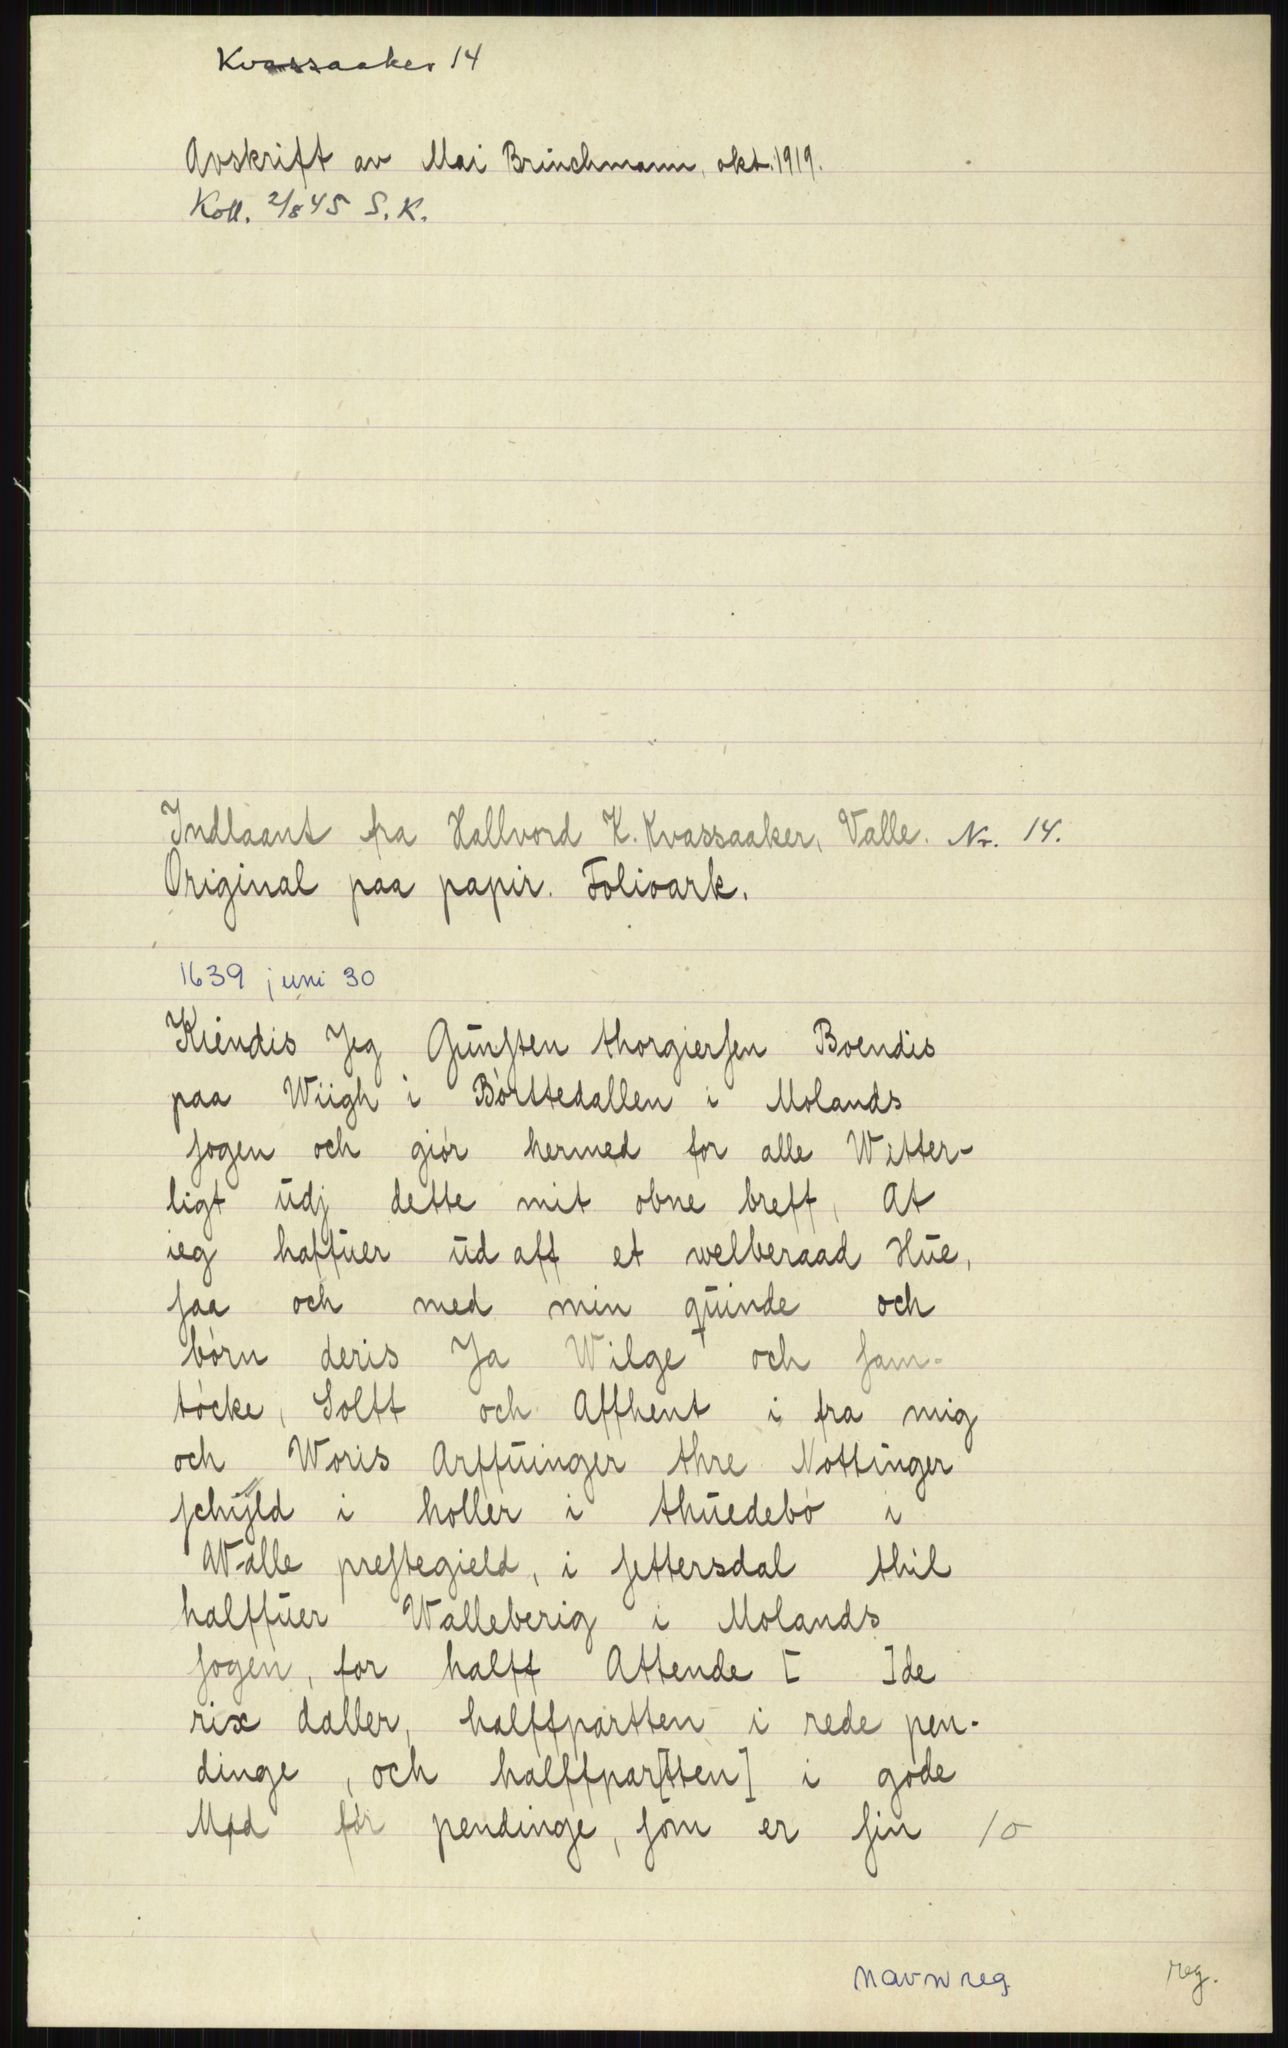 Kvassaaker 14
Avskrift av Mai Brinchmann, okt. 1919.
Koll. 2/8 45 S.K.
Indlaant fra Hallvord K. Kvassaaker, Valle. Nr. 14.
Original paa papir. Folioark.
1639 juni 30
Kiendis Jeg Gunsten thorgiersen Boendis
paa Wiigh i Börttedallen i Molands
sogen och giör hermed for alle Witter-
ligt udj dette mit obne breff, At
ieg haffuer ud aff et welberaad Hue,
saa och med min quinde och
börn deris Ja Wilge och sam-
töcke, Soltt och Affhent i fra mig
och Woris Arffuinger thre Nottinger
schÿld i holler i thuedebö i
Walle prestegield, i settersdal thil
halffuer Walleberig i Molands
sogen, for halff Attende [ ]de
rix daller, halffpartten i rede pen-
dinge, och halffpar[tten] i gode
Mod for pendinge, som er sin 10
navnreg
reg.